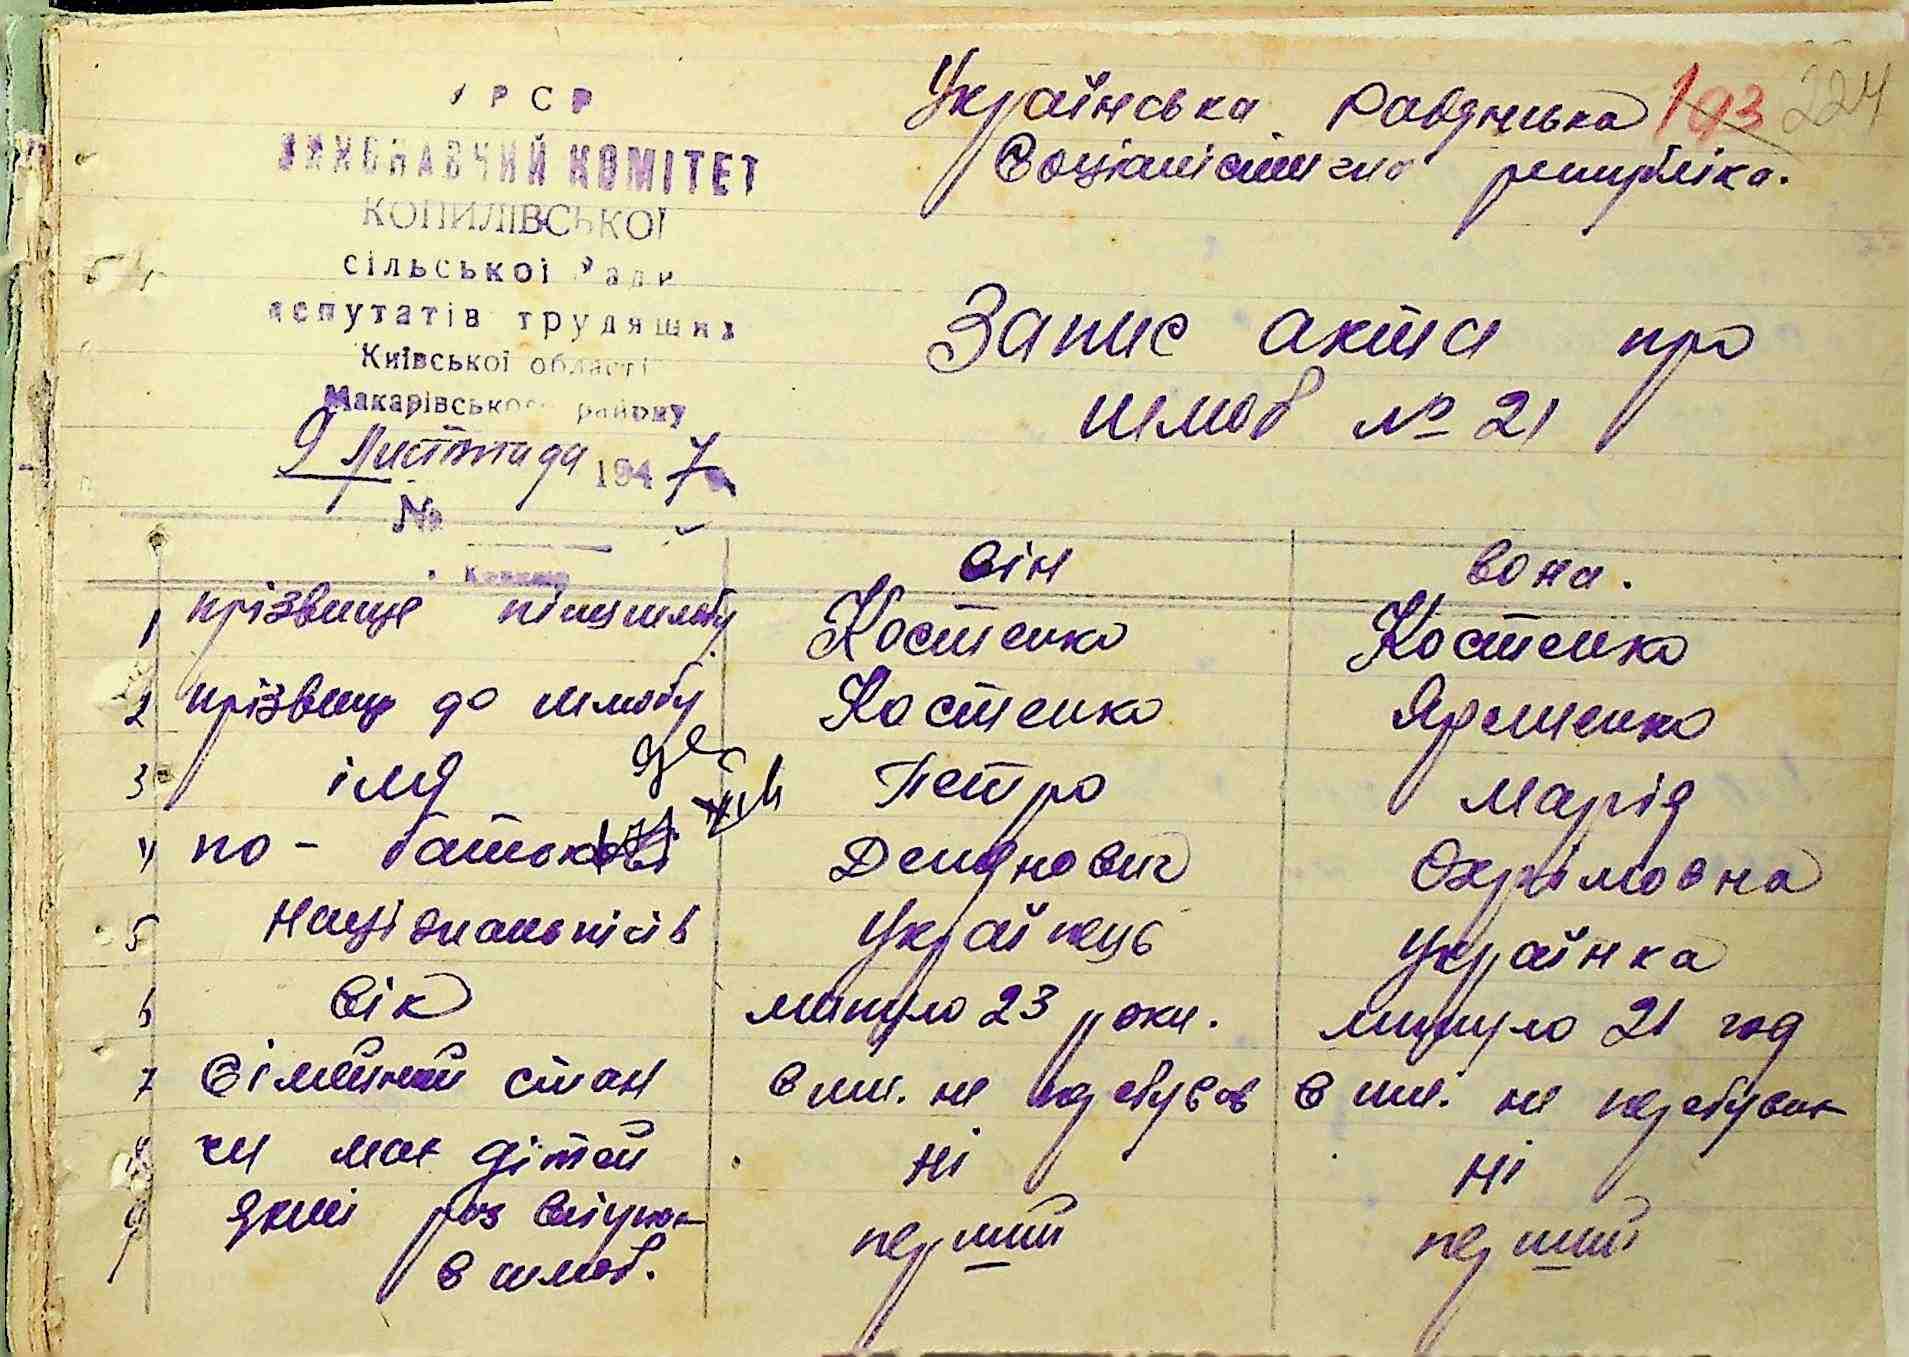 УРСР
ВИКОНАВЧИЙ КОМІТЕТ
КОПИЛІВСЬКОЇ
сільської Ради
депутатів трудящих
Київської області
Макарівського району
9 листопада 1947 р.
№
Українська Радянська 193 224
Соціалістична республіка.
Запис акта про
шлюб № 21
він вона.
1 прізвище після шлюбу Костенко Костенко
2 прізвище до шлюбу Костенко Яременко
3 імя Петро Марія
4 по-батькові Демянович Охрімовна
5 національність Українець Українка
6 вік минуло 23 роки. минуло 21 год
7 Сімейний стан в шл. не перебував в шл. не перебувал
8 чи має дітей ні ні
9 який раз вступає перший перший
в шлюб.